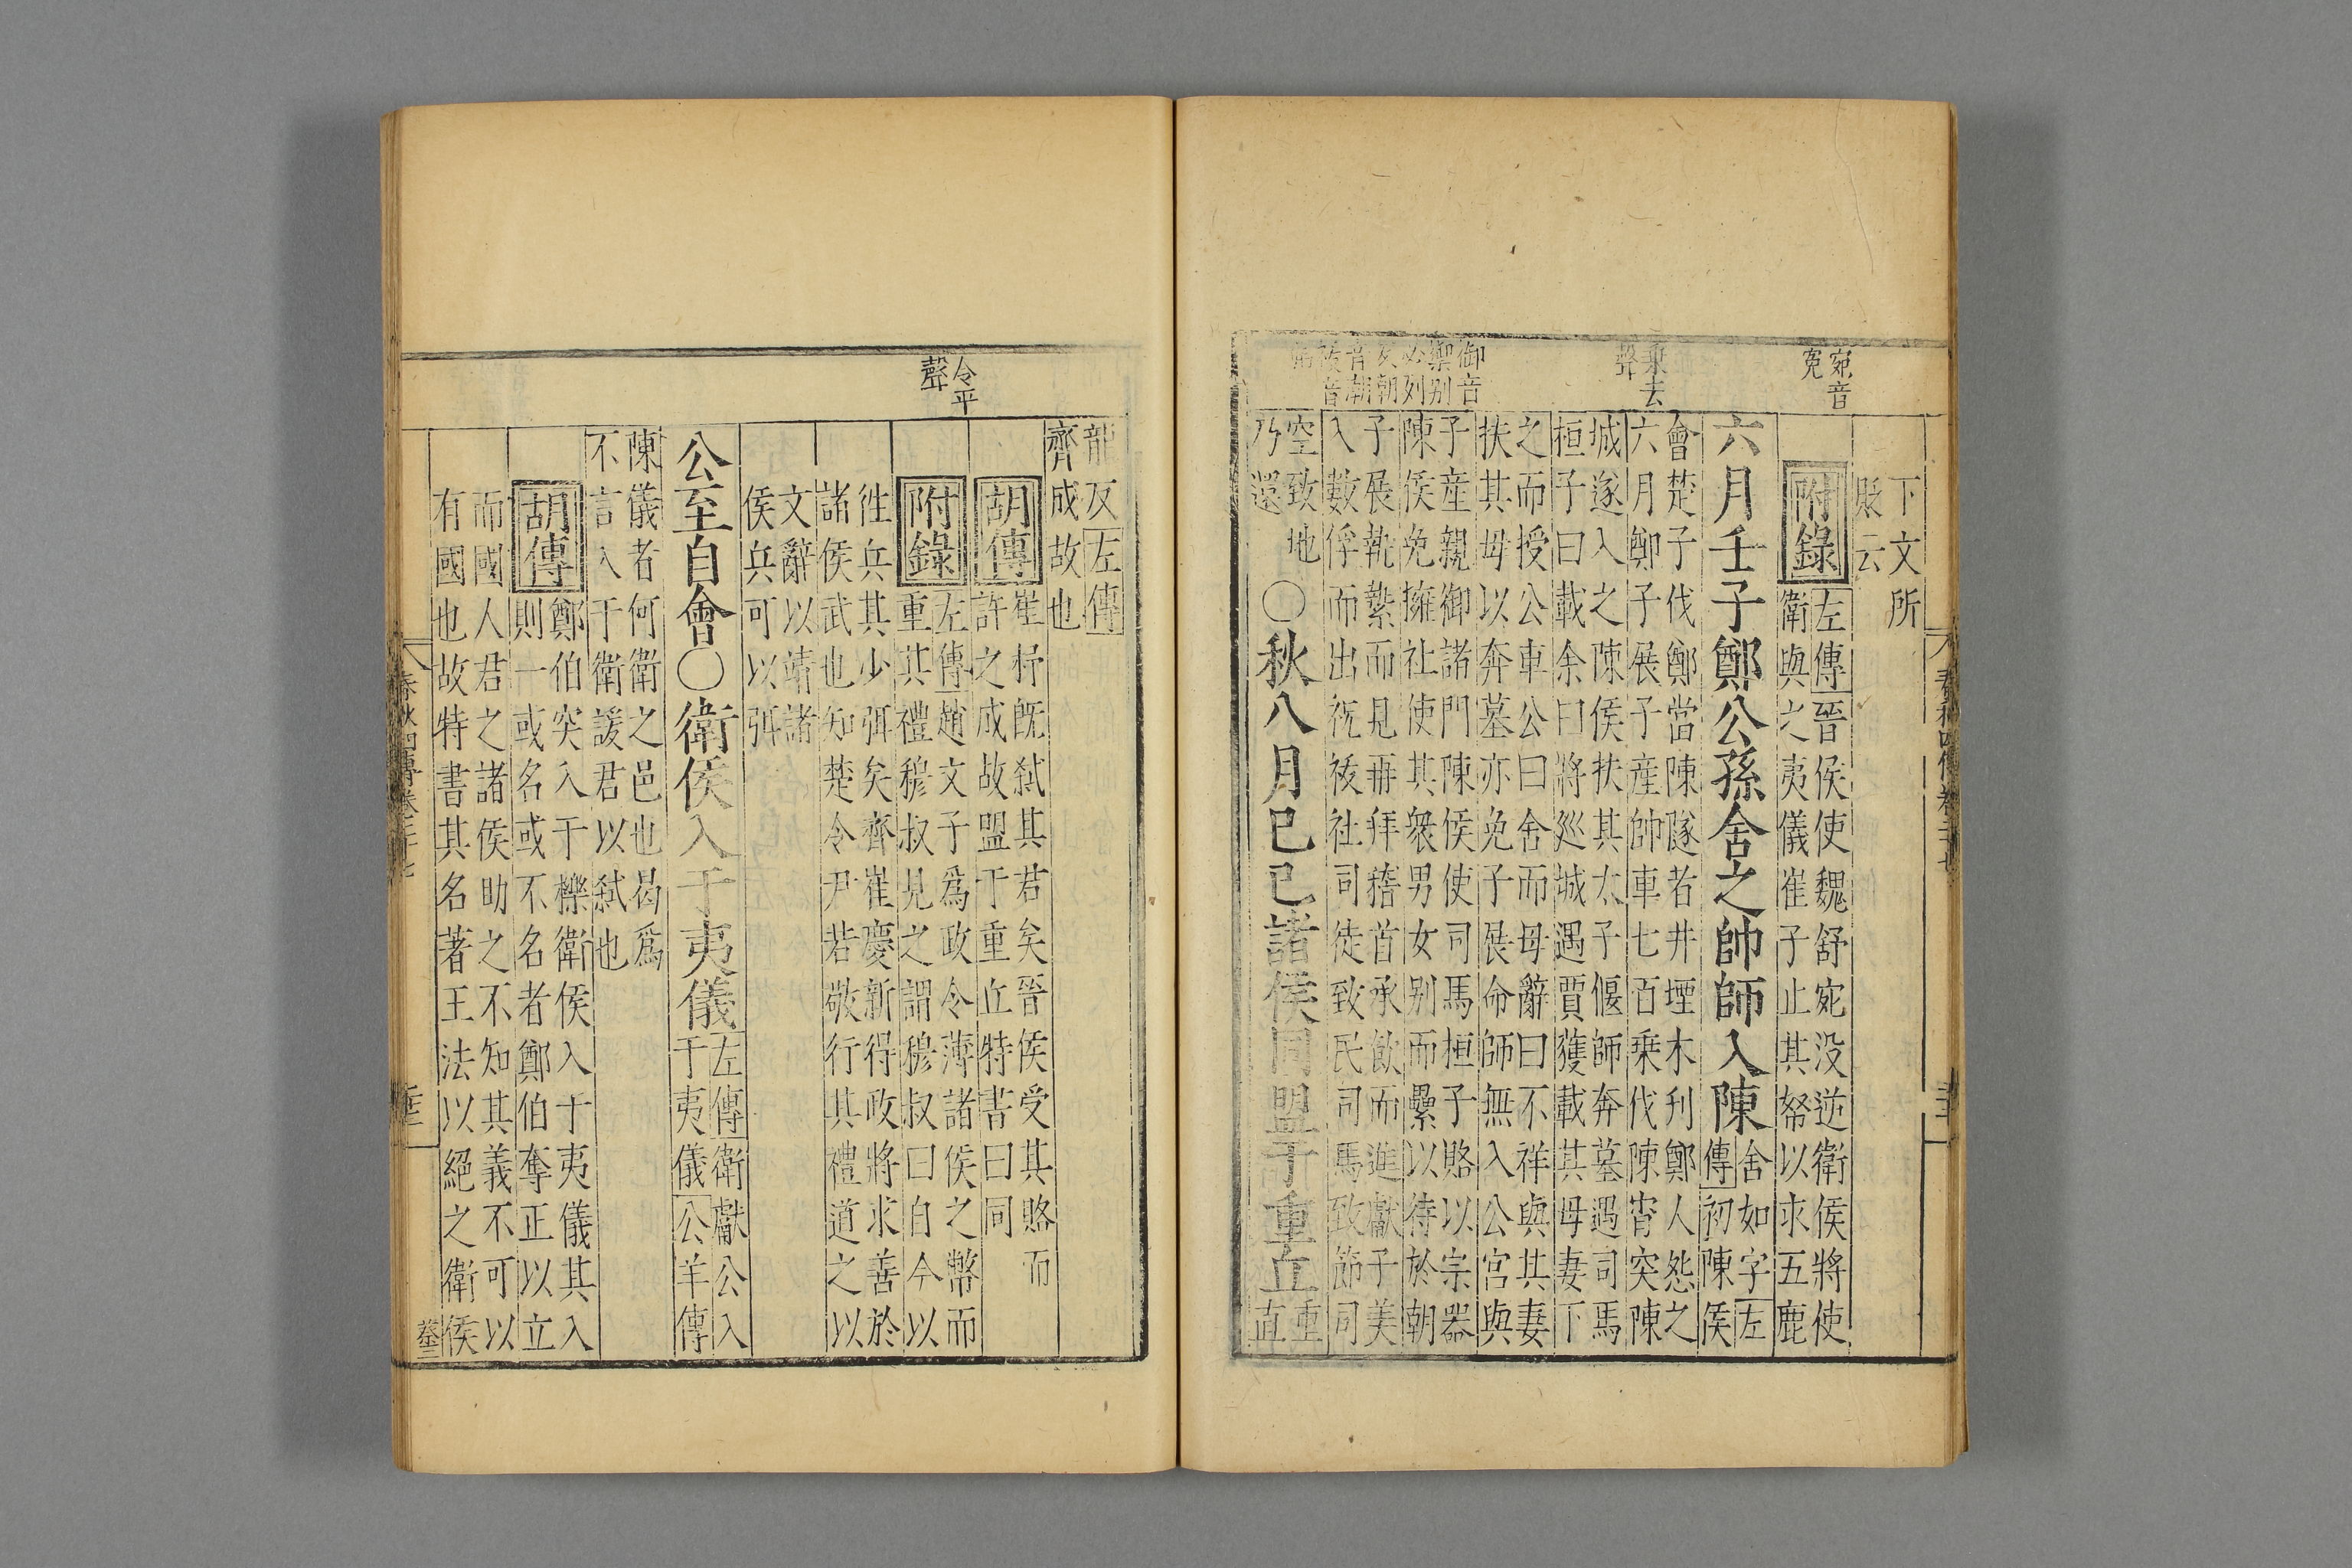 宛音
寃
乘去
聲
御音
禦別
必列
反朝
音潮
祓音
弗
下文所
貶云
附錄
左傳晉侯使魏舒宛没逆衛侯將使
衛與之夷儀崔子止其帑以求五鹿
六月壬子鄭公孫舍之帥師入陳
舍如字左
傳初陳侯
會楚子伐鄭當陳隧者井堙木刋鄭人怨之
六月鄭子展子產帥車七百乗伐陳宵突陳
城遂入之陳侯扶其太子偃師奔墓遇司馬
桓子曰載余曰將廵城遇賈獲載其母妻下
之而授公車公曰舍而母辭曰不祥與其妻
扶其母以奔墓亦免子展命師無入公宮與
子産親御諸門陳侯使司馬桓子賂以宗器
陳侯免擁社使其衆男女別而纍以待於朝
子展執縶而見再拜稽首承飲而進獻子美
入數俘而出祝祓社司徒致民司馬致節司
空致地
乃還
〇秋八月己巳諸侯同盟于重丘
重
直
春秋四傳卷二十七
令平
聲
龍反左傳
齊成故也
胡傳
崔杼旣弒其君矣晉侯受其賂而
許之成故盟于重丘特書曰同
附錄
左傳趙文子爲政令薄諸侯之幣而
重其禮穆叔見之謂穆叔曰自今以
徃兵其少弭矣齊崔慶新得政將求善於
諸侯武也知楚令尹若敬行其禮道之以
文辭以靖諸
侯兵可以弭
公至自會〇衛侯入于夷儀
左傳衛獻公入
于夷儀公羊傳
陳儀者何衛之邑也曷爲
不言入于衛諼君以弒也
胡傳
鄭伯突入于櫟衛侯入于夷儀其入
則一或名或不名者鄭伯奪正以立
而國人君之諸侯助之不知其義不可以
有國也故特書其名著王法以絕之衛侯
春秋四傳卷二十七